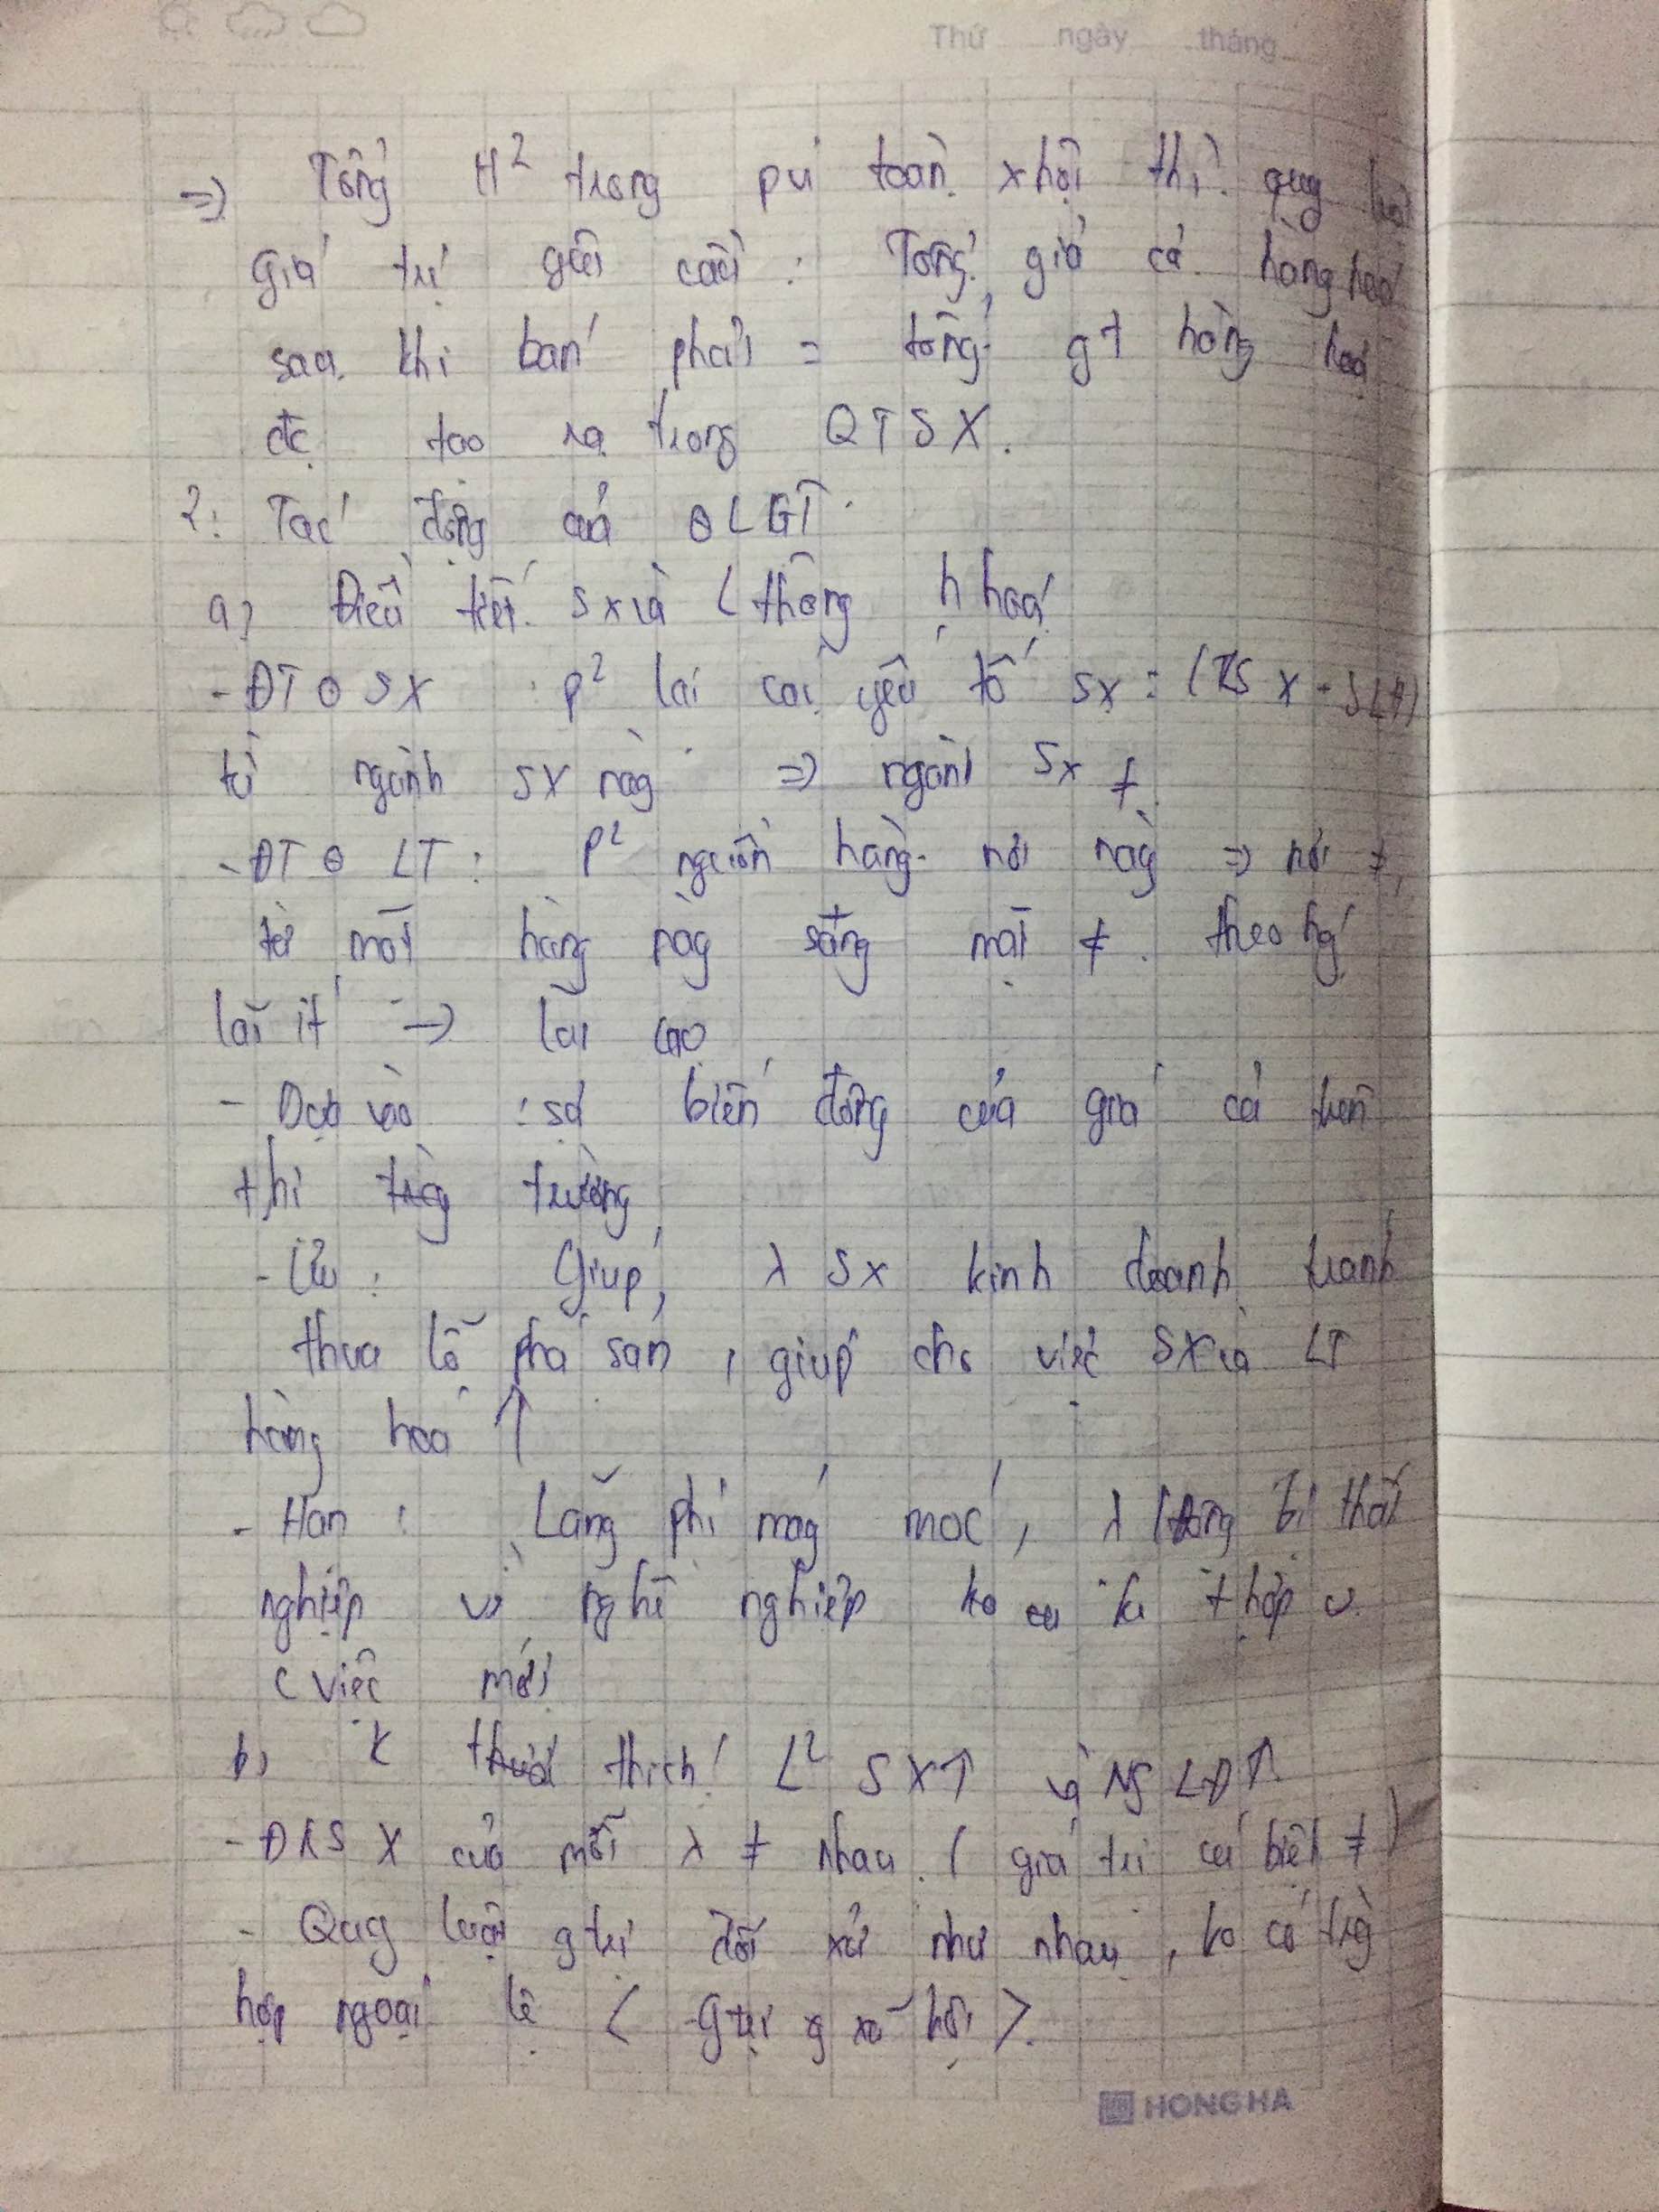 Thứ ngày tháng
=> Tổng H² trong pvi toàn xhội thì quy luật
giá trị yêu cầu : Tổng giá cả hàng hoá
sau khi bán phải = tổng gt hàng hoá
đc tạo ra trong QTSX.
2: Tác động của QLGT.
a) Điều tiết sx và lthông h hoá
- ĐT θ SX : P² lại các yếu tố sx : (TLSX - SLĐ)
từ ngành sx này => ngành sx ≠.
- ĐT θ LT : P² nguồn hàng nơi này => nơi ≠,
từ mặt hàng này sang mặt ≠. theo hg
lãi ít => lãi cao
- Dựa vào : sự biến động của giá cả trên
thị trường
- Ưu : Giúp λ sx kinh doanh tránh
thua lỗ phá sản, giúp cho việc SX và LT
hàng hoá ↑
- Hạn : Lãng phí máy móc, λ lđộng bị thất
nghiệp vì nghề nghiệp ko thợp v
cviệc mới
b) K thích L² SX↑ và NSLĐ↑
- ĐKSX của mỗi λ ≠ nhau. ( giá trị cá biệt ≠ )
- Quy luật gtrị đối xử như nhau, ko có trg
hợp ngoại lệ < gtrị xã hội >.
HONG HA